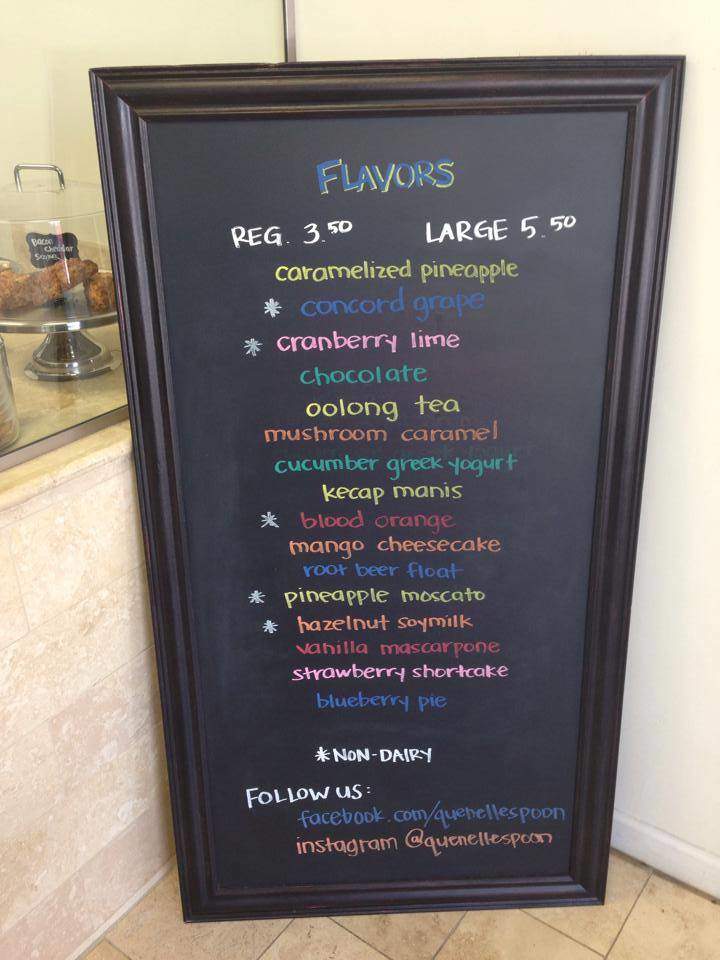 FLAVORS
REG. 3.50 LARGE 5.50
caramelized pineapple
* concord grape
* cranberry lime
chocolate
oolong tea
mushroom caramel
cucumber greek yogurt
kecap manis
* blood orange
mango cheesecake
root beer float
* pineapple moscato
* hazelnut soymilk
vanilla mascarpone
strawberry shortcake
blueberry pie
* NON-DAIRY
FOLLOW US:
facebook.com/quenellespoon
instagram @quenellespoon
Bacon
Cheddar